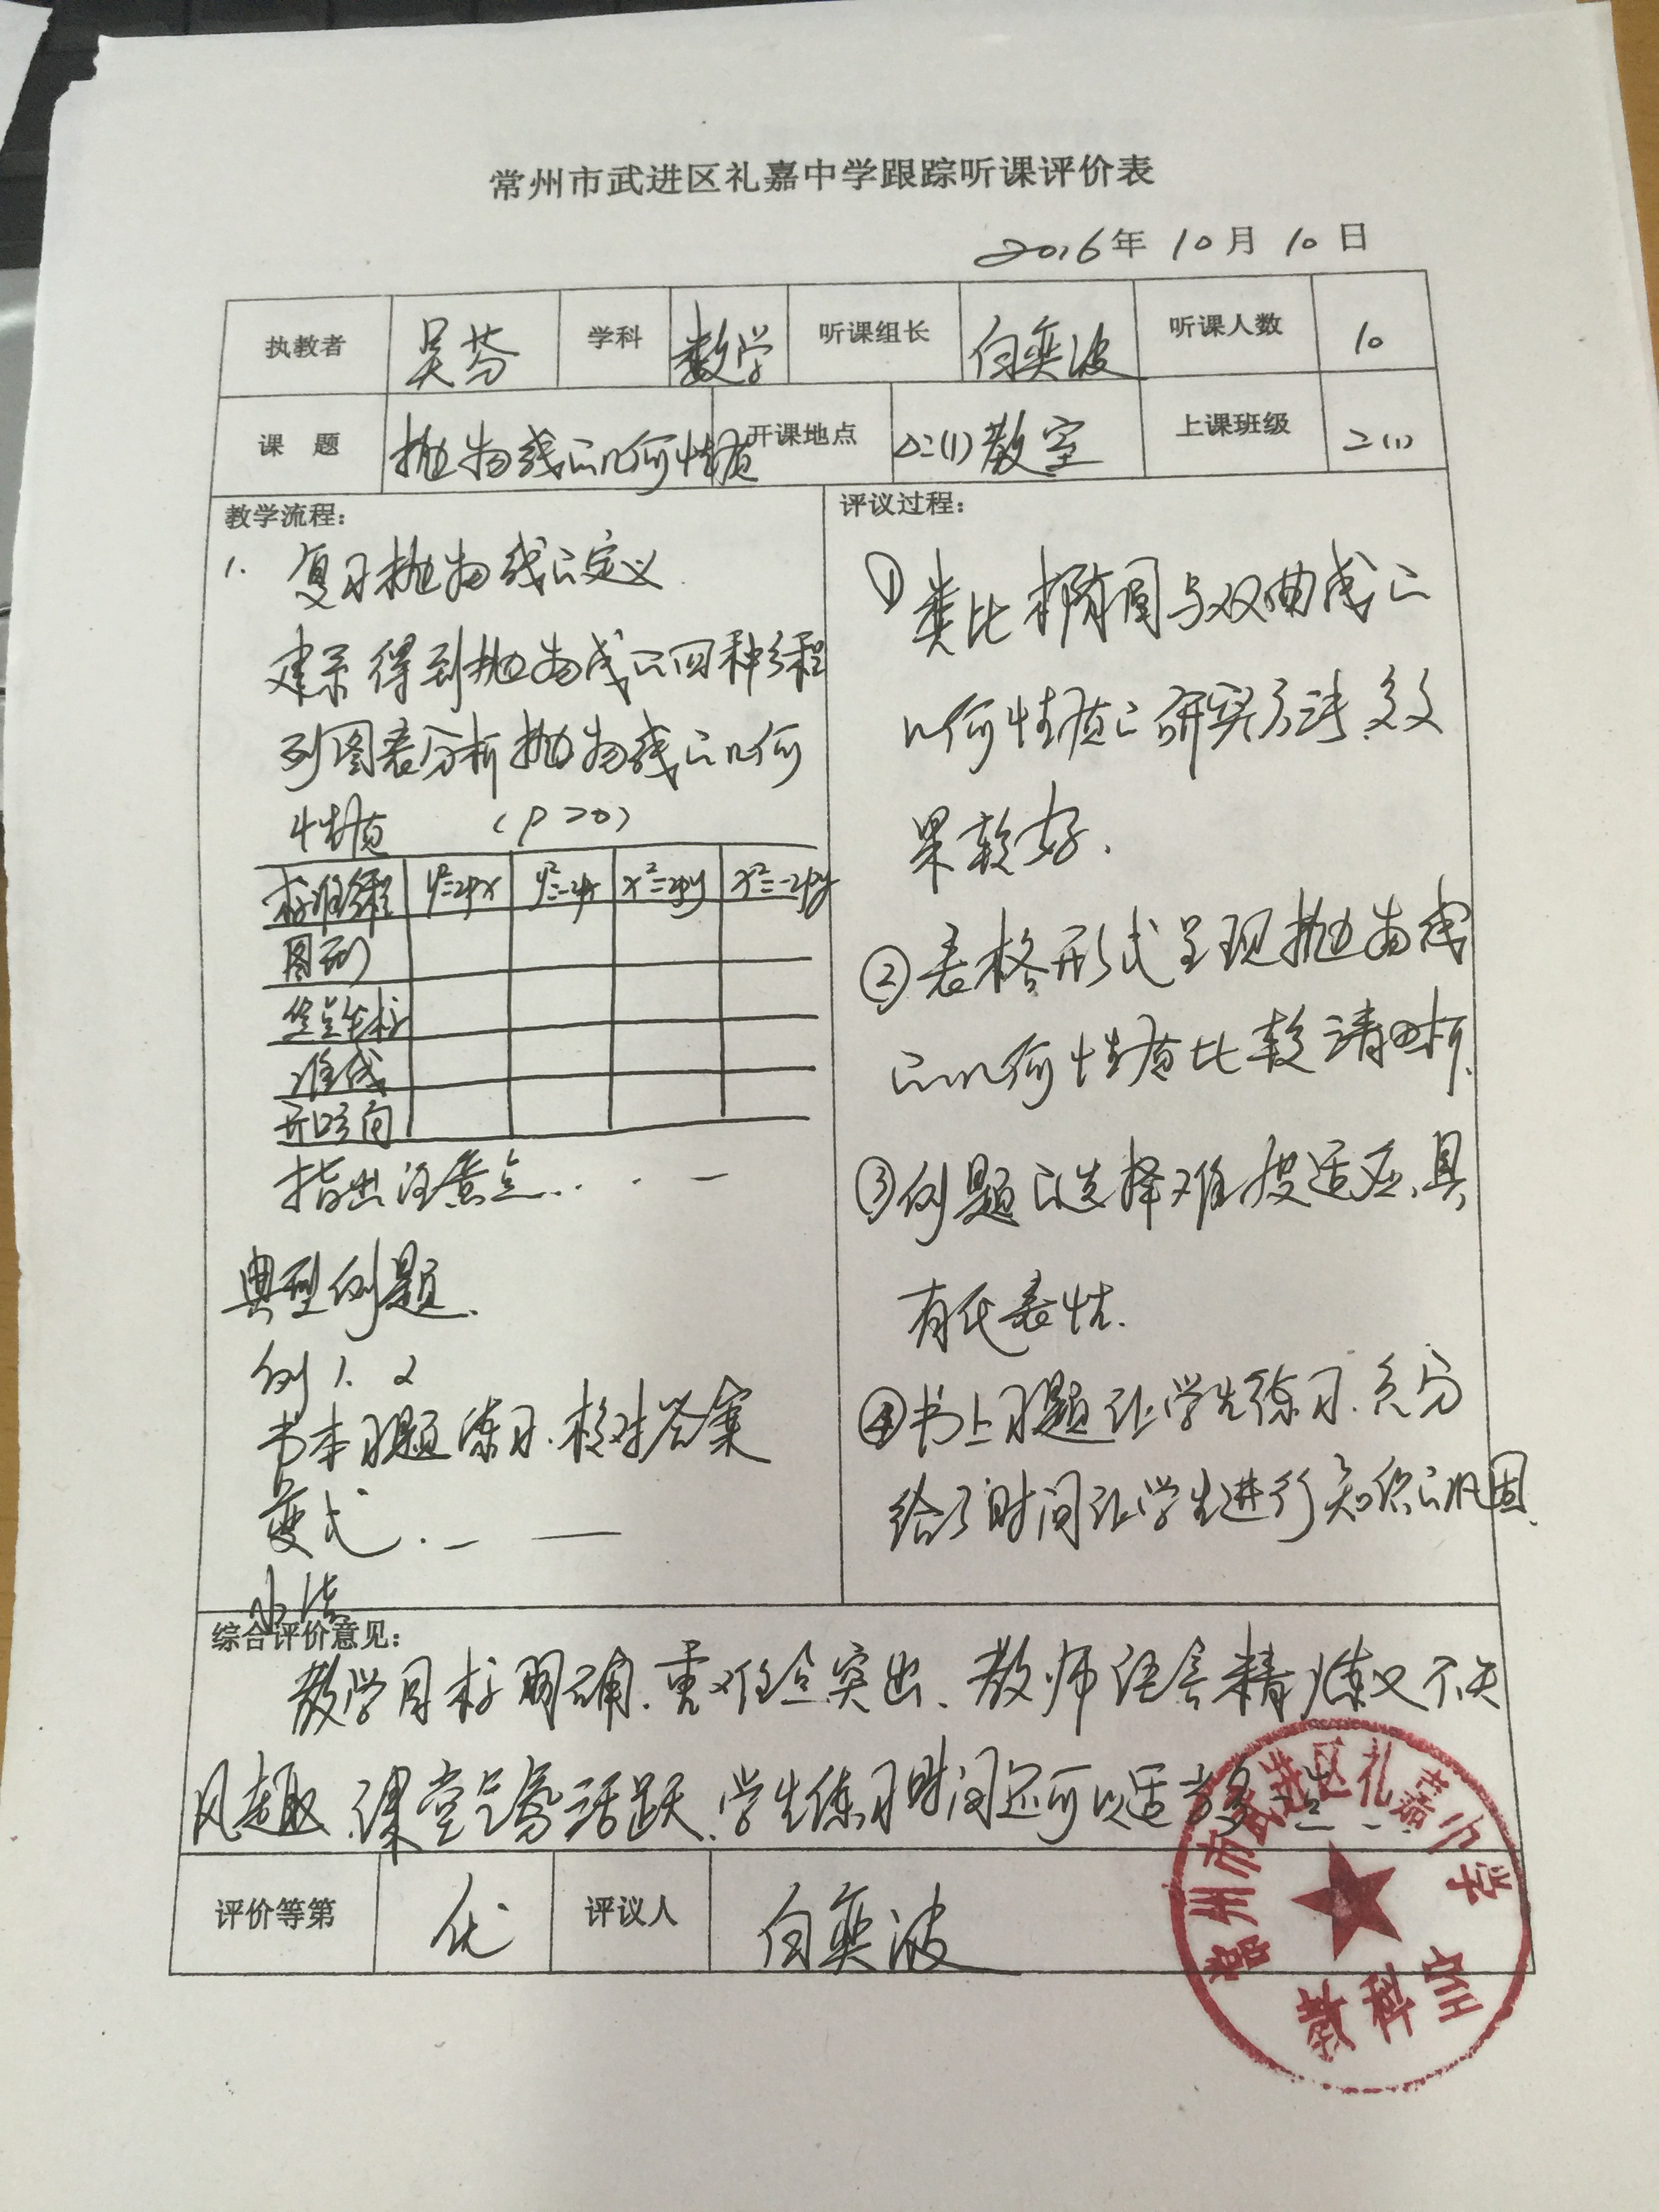 常州市武进区礼嘉中学跟踪听课评价表
2016年 10月 10日
执教者 吴芬 学科 数学 听课组长 白奕波 听课人数 10
课 题 抛物线的几何性质 开课地点 高二(1)教室 上课班级 二(1)
教学流程：
1. 复习抛物线的定义
建系得到抛物线的四种方程
列图表分析抛物线的几何
性质 (p>0)
标准方程 y²=2px y²=-2px x²=2py x²=-2py
图形
焦点坐标
准线
开口方向
指出注意点...—
典型例题.
例1. 2
书本习题练习.核对答案
变式. — —
小结
评议过程：
① 类比椭圆与双曲线的
几何性质的研究方法.效
果较好.
②表格形式呈现抛物线
的几何性质比较清晰.
③例题的选择难度适应.具
有代表性.
④书上习题让学生练习.充分
给了时间让学生进行知识的巩固.
综合评价意见：
教学目标明确.重难点突出.教师语言精炼又不失
风趣.课堂气氛活跃.学生练习时间还可以适当多一些...
评价等第 优 评议人 白奕波
常州市武进区礼嘉中学
教科室